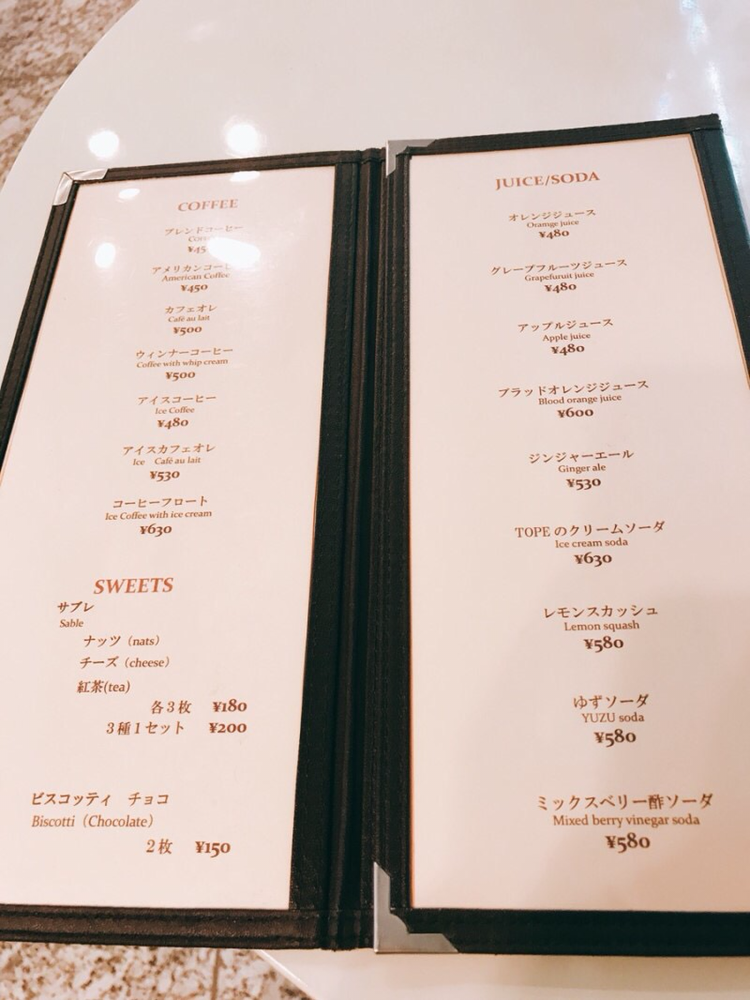 COFFEE
ブレンドコーヒー
¥45
アメリカンコーヒー
American Coffee
¥450
カフェオレ
Café au lait
¥500
ウィンナーコーヒー
Coffee with whip cream
¥500
アイスコーヒー
Ice Coffee
¥480
アイスカフェオレ
Ice Café au lait
¥530
コーヒーフロート
Ice Coffee with ice cream
¥630
SWEETS
サブレ
Sable
ナッツ（nats）
チーズ（cheese）
紅茶(tea)
各3枚 ¥180
3種1セット ¥200
ビスコッティ チョコ
Biscotti（Chocolate）
2枚 ¥150
JUICE/SODA
オレンジジュース
Oramge juice
¥480
グレープフルーツジュース
Grapefuruit juice
¥480
アップルジュース
Apple juice
¥480
ブラッドオレンジジュース
Blood orange juice
¥600
ジンジャーエール
Ginger ale
¥530
TOPEのクリームソーダ
Ice cream soda
¥630
レモンスカッシュ
Lemon squash
¥580
ゆずソーダ
YUZU soda
¥580
ミックスベリー酢ソーダ
Mixed berry vinegar soda
¥580